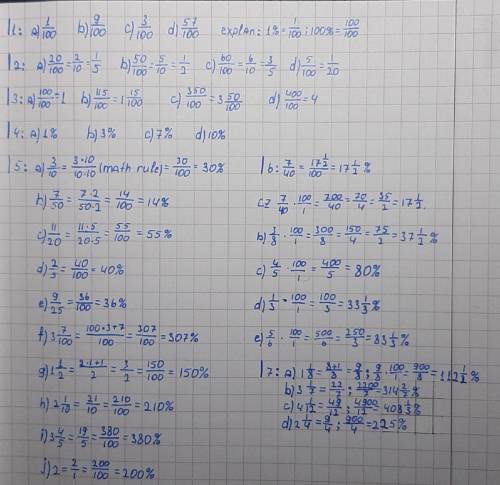 1: a) 1/100 b) 9/100 c) 3/100 d) 57/100 explan: 1% = 1/100; 100% = 100/100
2: a) 20/100 = 2/10 = 1/5 b) 50/100 = 5/10 = 1/2 c) 60/100 = 6/10 = 3/5 d) 5/100 = 1/20
3: a) 100/100 = 1 b) 115/100 = 1 15/100 c) 350/100 = 3 50/100 d) 400/100 = 4
4: a) 1% b) 3% c) 7% d) 10%
5: a) 3/10 = 3·10/10·10 (math rule) = 30/100 = 30%
b) 7/50 = 7·2/50·2 = 14/100 = 14%
c) 11/20 = 11·5/20·5 = 55/100 = 55%
d) 2/5 = 40/100 = 40%
e) 9/25 = 36/100 = 36%
f) 3 7/100 = 100·3+7/100 = 307/100 = 307%
g) 1 1/2 = 2·1+1/2 = 3/2 = 150/100 = 150%
h) 2 1/10 = 21/10 = 210/100 = 210%
i) 3 4/5 = 19/5 = 380/100 = 380%
j) 2 = 2/1 = 200/100 = 200%
6: 7/40 = 17 1/2/100 = 17 1/2 %
cz 7/40 · 100/1 = 700/40 = 70/4 = 35/2 = 17 1/2.
b) 3/8 · 100/1 = 300/8 = 150/4 = 75/2 = 37 1/2 %
c) 4/5 · 100/1 = 400/5 = 80%
d) 1/3 · 100/1 = 100/3 = 33 1/3 %
e) 5/6 · 100/1 = 500/6 = 250/3 = 83 1/3 %
7: a) 1 1/8 = 8+1/8 = 9/8; 9/8 · 100/1 = 900/8 = 112 1/2 %
b) 3 1/7 = 22/7; 2200/7 = 314 2/7 %
c) 4 1/12 = 49/12; 4900/12 = 408 1/3 %
d) 2 1/4 = 9/4; 900/4 = 225%